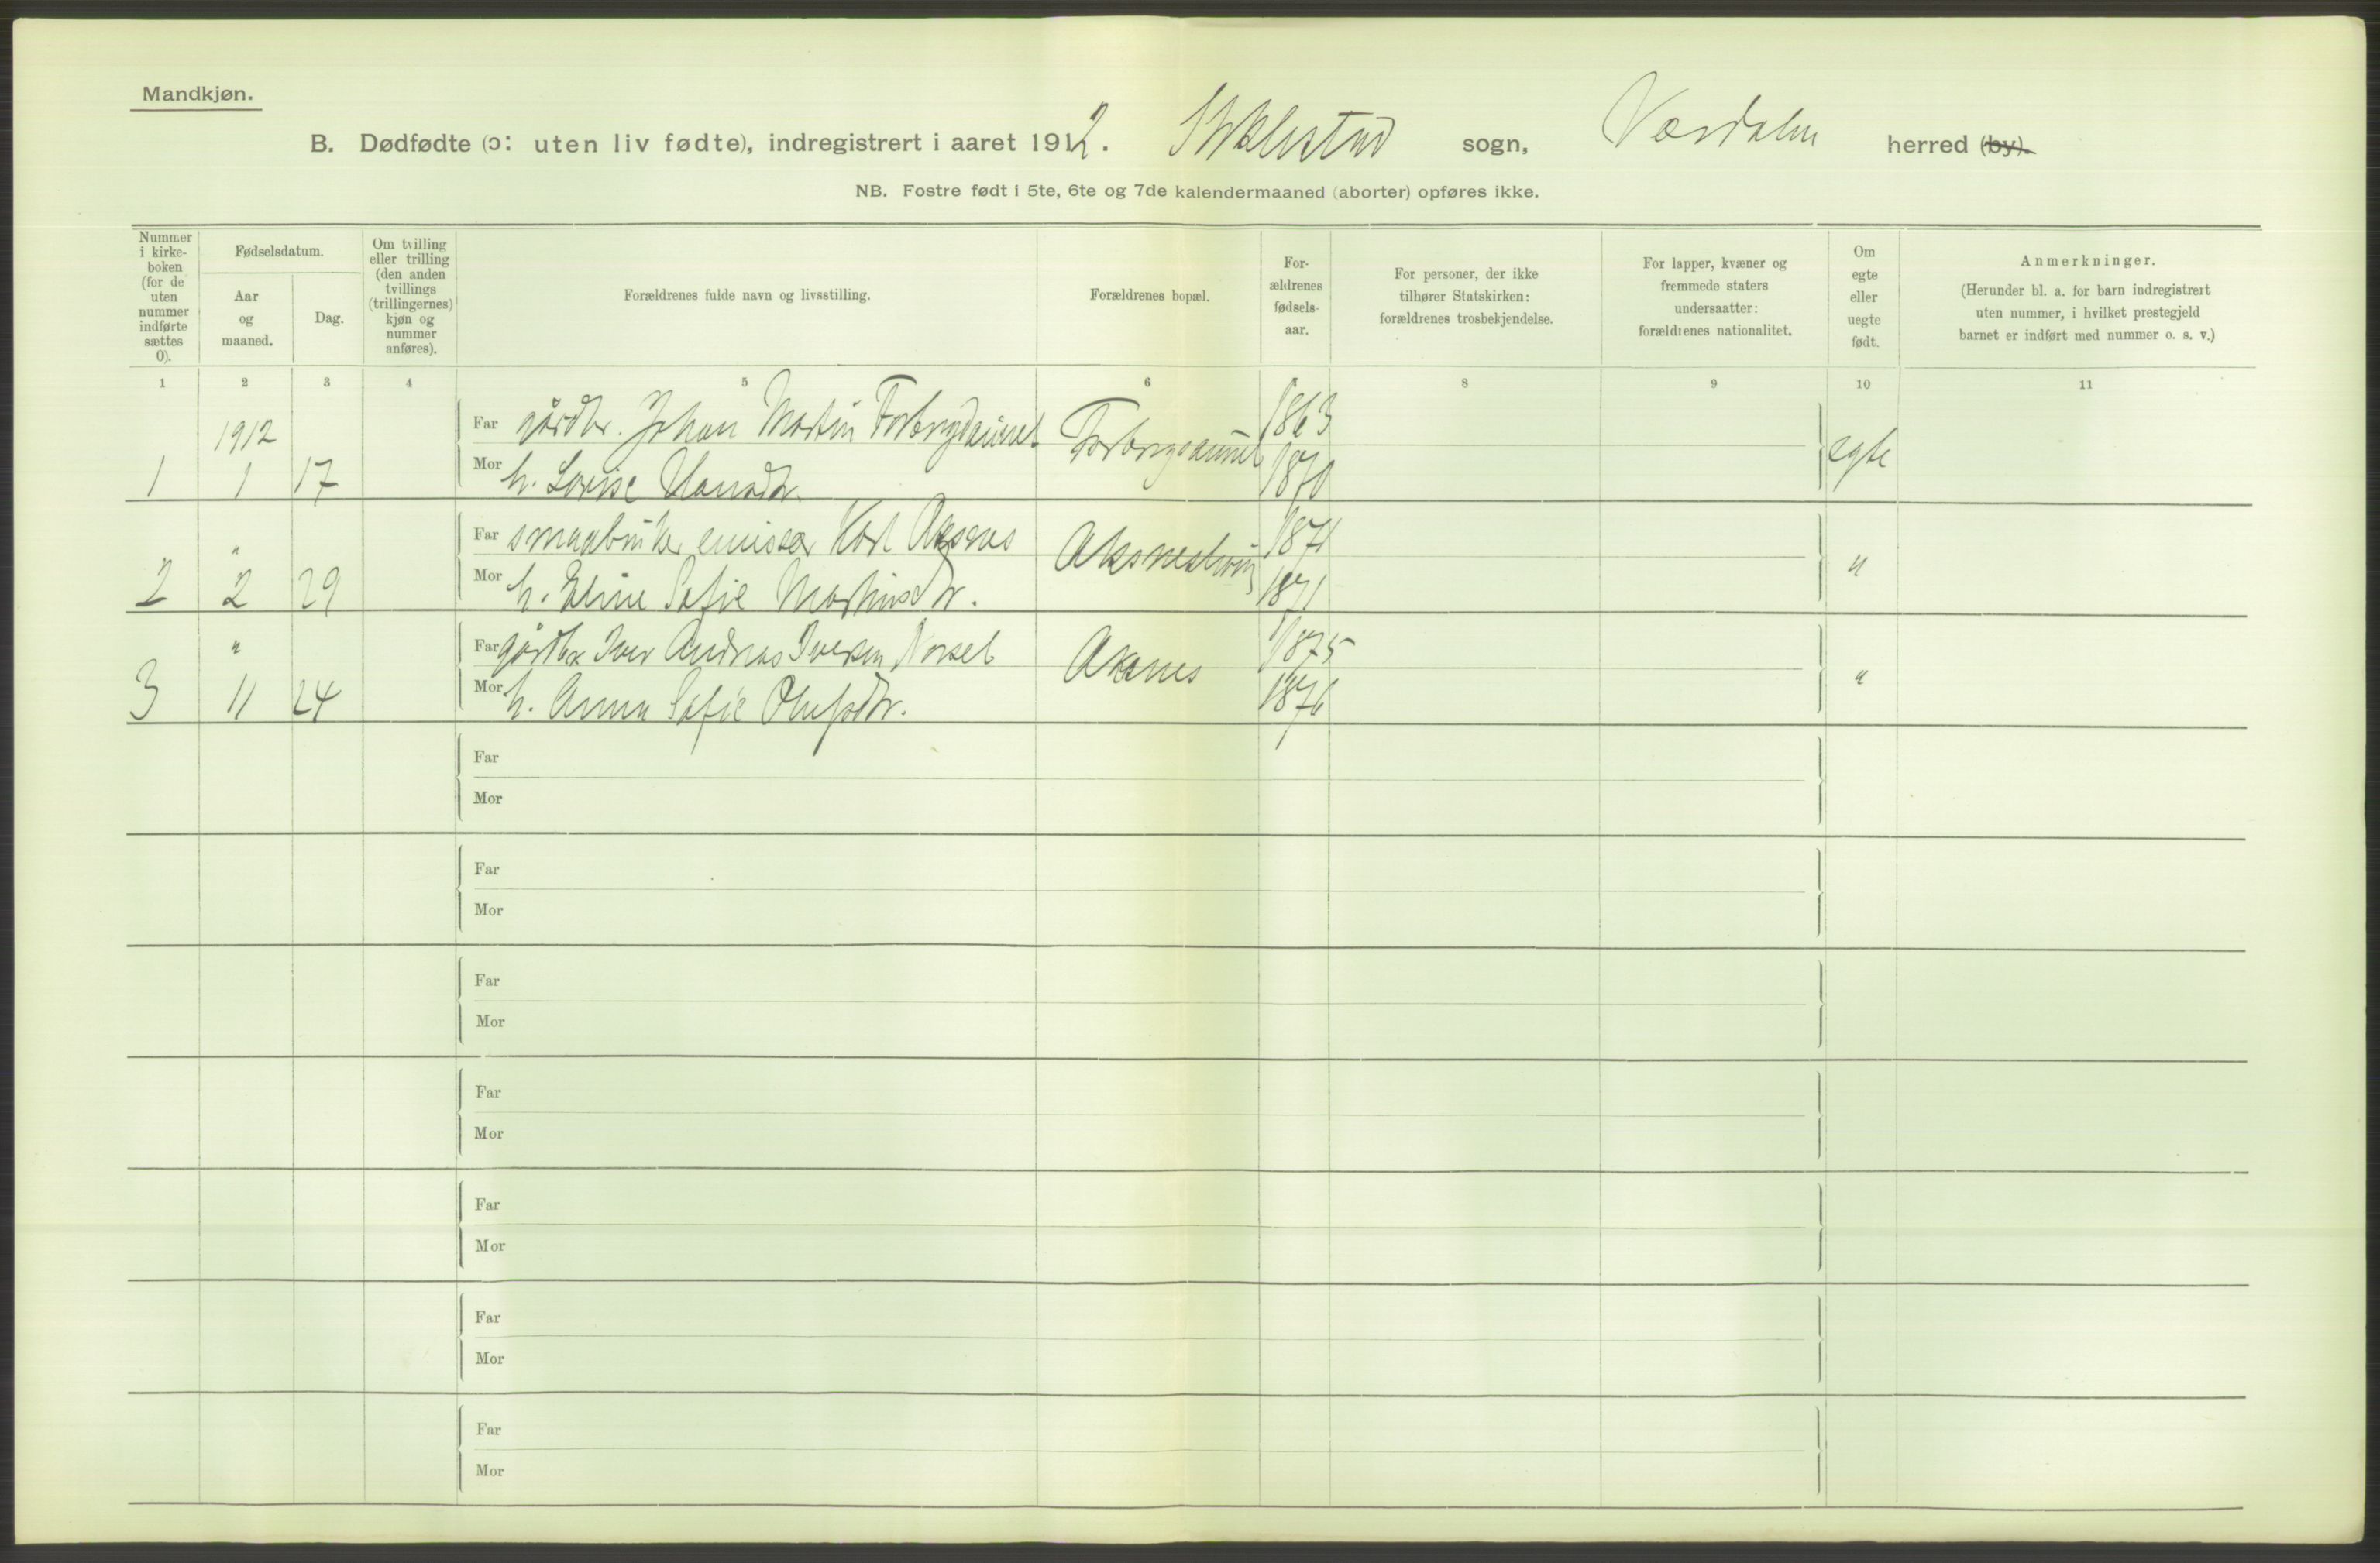 Mandkjøn.
B. Dødfødte (ɔ: uten liv fødte), indregistrert i aaret 1912. Stiklestad sogn, Værdalen herred (by).
NB. Fostre født i 5te, 6te og 7de kalendermaaned (aborter) opføres ikke.
Nummer i kirke-boken (for de uten nummer indførte sættes 0).
Fødselsdatum.
Aar og maaned.
Dag.
Om tvilling eller trilling (den anden tvillings (trillingernes) kjøn og nummer anføres).
Forældrenes fulde navn og livsstilling.
Forældrenes bopæl.
For-ældrenes fødsels-aar.
For personer, der ikke tilhører Statskirken: forældrenes trosbekjendelse.
For lapper, kvæner og fremmede staters undersaatter: forældrenes nationalitet.
Om egte eller uegte født.
Anmerkninger.
(Herunder bl. a. for barn indregistrert uten nummer, i hvilket prestegjeld barnet er indført med nummer o. s. v.)
1 2 3 4 5 6 7 8 9 10 11
1 1912 1 17 Far gårdbr. Johan Martin Forbregdaunet Forbregdaunet 1863 egte
Mor h. Lovise Hansdtr. 1870
2 " 2 29 Far smaabruker emissær Karl Aksnes 1871 "
Mor h. Eline Sofie Martinsdtr. 1871
3 " 11 24 Far gårdbr Iver Andreas Iversen Aksnes 1875 "
Mor h. Anna Sofie Olufsdtr. 1876
Far
Mor
Far
Mor
Far
Mor
Far
Mor
Far
Mor
Far
Mor
Far
Mor